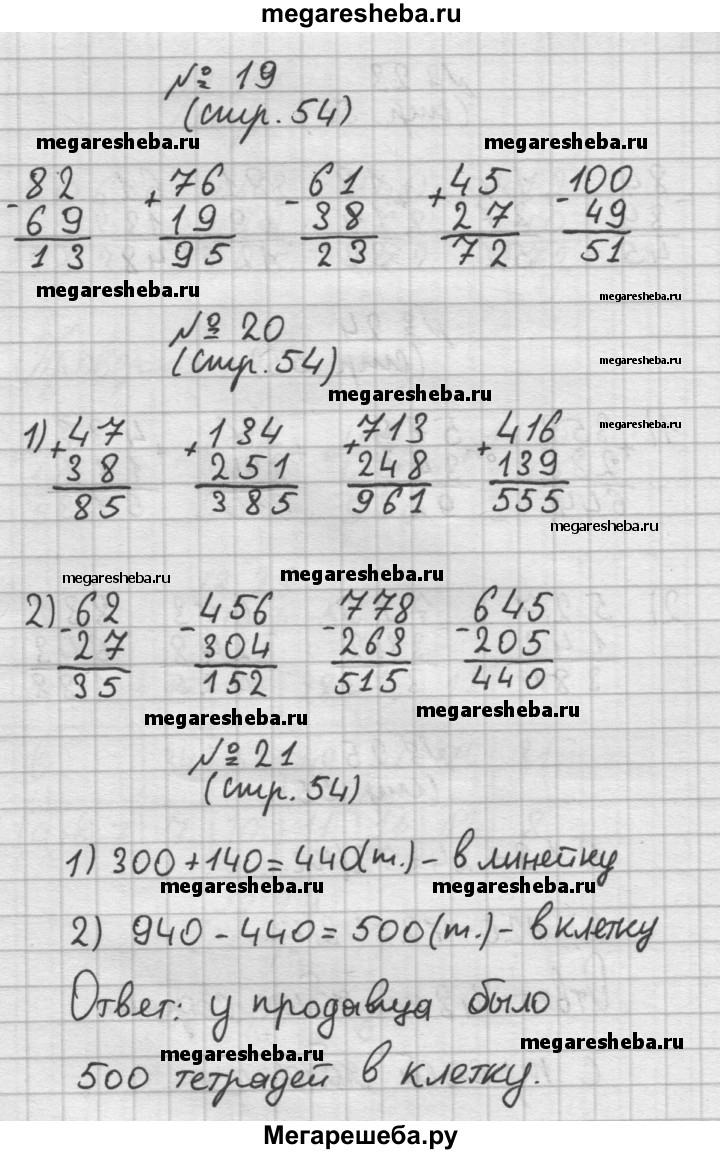 megaresheba.ru
№ 19
(стр. 54)
megaresheba.ru megaresheba.ru
- 82 + 76 - 61 + 45 - 100
69 19 38 27 49
13 95 23 72 51
megaresheba.ru megaresheba.ru
№ 20
(стр. 54)
megaresheba.ru
megaresheba.ru
1) + 47 + 134 + 713 + 416
megaresheba.ru
38 251 248 139
85 385 961 555
megaresheba.ru
megaresheba.ru megaresheba.ru
2) - 62 - 456 - 778 - 645
27 304 263 205
35 152 515 440
megaresheba.ru megaresheba.ru
№ 21
(стр. 54)
1) 300 + 140 = 440 (т.) - в линейку
megaresheba.ru megaresheba.ru
2) 940 - 440 = 500 (т.) - в клетку
Ответ: у продавца было
megaresheba.ru
megaresheba.ru
500 тетрадей в клетку.
Мегарешеба.ру